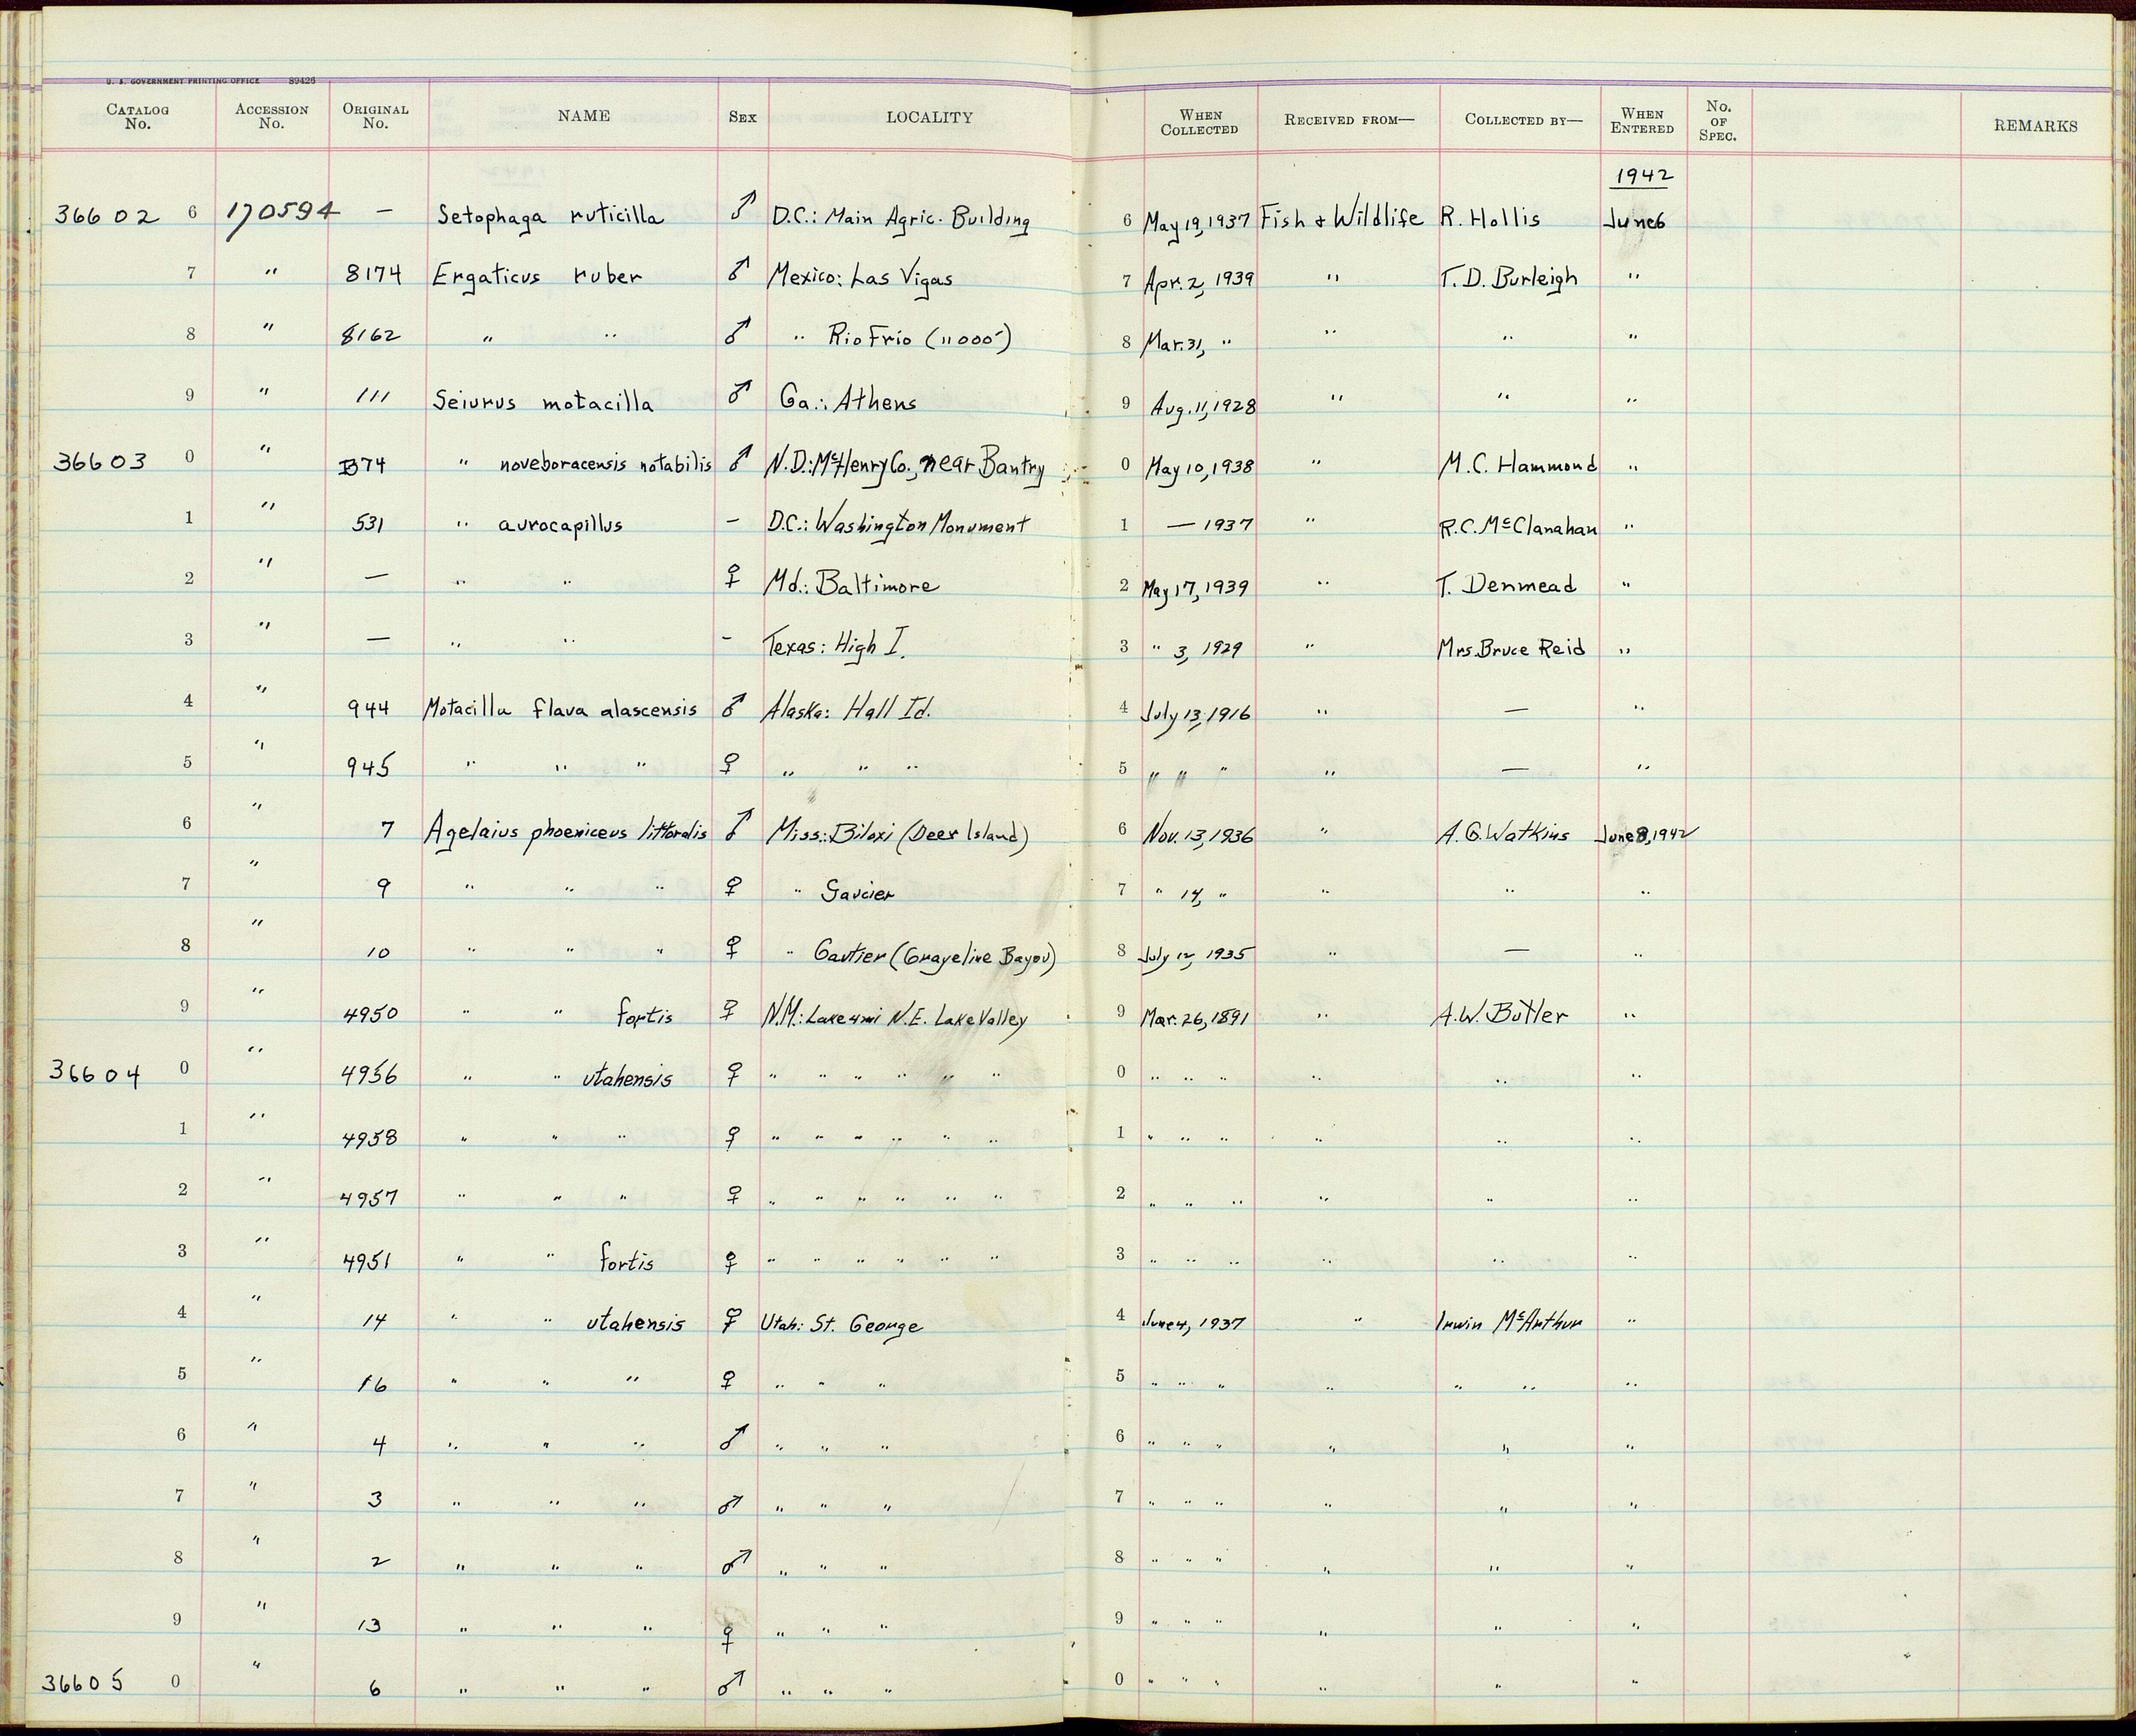 U. S. GOVERNMENT PRINTING OFFICE 89426
CATALOG No. ACCESSION No. ORIGINAL No. NAME SEX LOCALITY WHEN COLLECTED RECEIVED FROM— COLLECTED BY— WHEN ENTERED No. OF SPEC. REMARKS
1942
36602 6 170594 — Setophaga ruticilla ♂ D.C.: Main Agric. Building 6 May 19, 1937 Fish & Wildlife R. Hollis June 6
7 " 8174 Ergaticus ruber ♂ Mexico: Las Vigas 7 Apr. 2, 1939 " T. D. Burleigh "
8 " 8162 " " ♂ " Rio Frio (11000') 8 Mar. 31, " " " "
9 " 111 Seiurus motacilla ♂ Ga.: Athens 9 Aug. 11, 1928 " " "
36603 0 " B74 " noveboracensis notabilis ♂ N.D.: McHenry Co., near Bantry 0 May 10, 1938 " M. C. Hammond "
1 " 531 " aurocapillus – D.C.: Washington Monument 1 — 1937 " R. C. McClanahan "
2 " — " " ♀ Md.: Baltimore 2 May 17, 1939 " T. Denmead "
3 " — " " – Texas: High I. 3 " 3, 1929 " Mrs. Bruce Reid "
4 " 944 Motacilla flava alascensis ♂ Alaska: Hall Id. 4 July 13, 1916 " — "
5 " 945 " " " ♀ " " " 5 " " " " — "
6 " 7 Agelaius phoeniceus littoralis ♂ Miss.: Biloxi (Deer Island) 6 Nov. 13, 1936 " A. G. Watkins June 8, 1942
7 " 9 " " " ♀ " Saucier 7 " 14, " " " "
8 " 10 " " " ♀ " Gautier (Graveline Bayou) 8 July 12, 1935 " — "
9 " 4950 " " fortis ♀ N.M.: Lake 4 mi N.E. Lake Valley 9 Mar. 26, 1891 " A. W. Butler "
36604 0 " 4956 " " utahensis ♀ " " " " " " 0 " " " " " "
1 " 4958 " " " ♀ " " " " " " 1 " " " " " "
2 " 4957 " " " ♀ " " " " " " 2 " " " " " "
3 " 4951 " " fortis ♀ " " " " " " 3 " " " " " "
4 " 14 " " utahensis ♀ Utah: St. George 4 June 4, 1937 " Irwin McArthur "
5 " 16 " " " ♀ " " " 5 " " " " " " "
6 " 4 " " " ♂ " " " 6 " " " " " "
7 " 3 " " " ♂ " " " 7 " " " " " "
8 " 2 " " " ♂ " " " 8 " " " " " "
9 " 13 " " " ♀ " " " 9 " " " " " "
36605 0 " 6 " " " ♂ " " " 0 " " " " " "